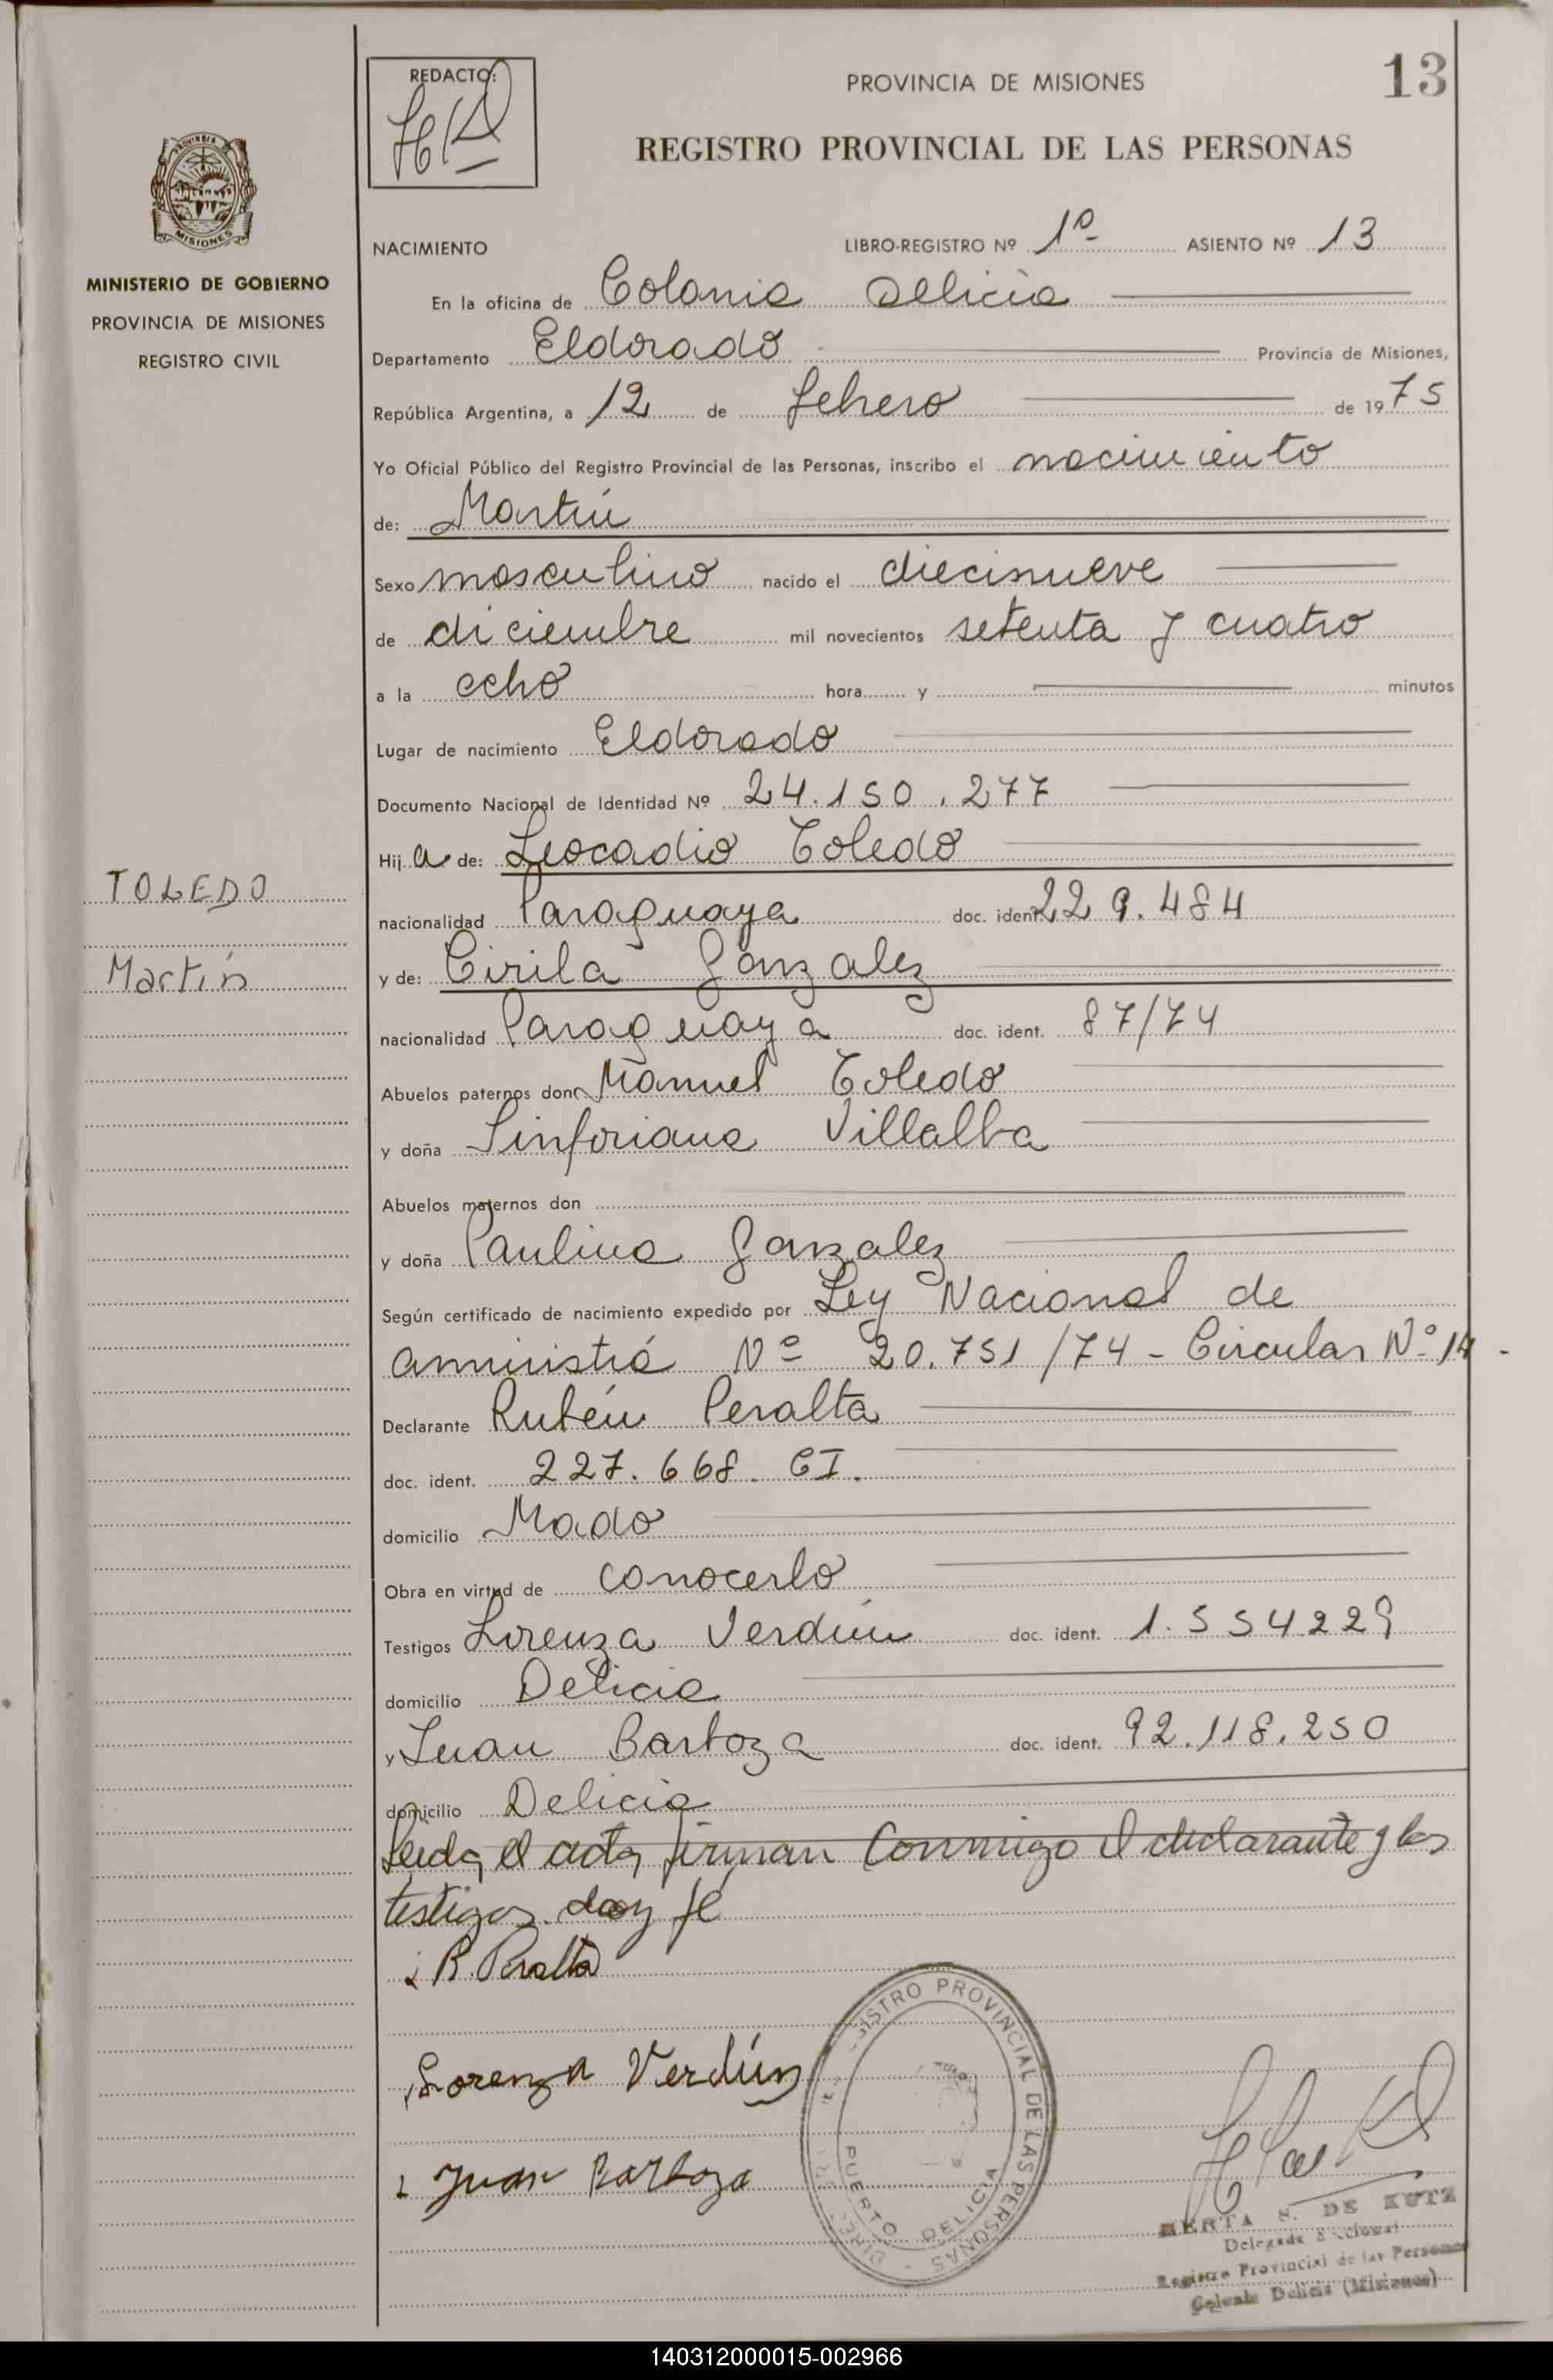 REDACTO:
PROVINCIA DE MISIONES
13
REGISTRO PROVINCIAL DE LAS PERSONAS
PROVINCIA DE
MISIONES
MINISTERIO DE GOBIERNO
PROVINCIA DE MISIONES
REGISTRO CIVIL
NACIMIENTO LIBRO-REGISTRO Nº 1º ASIENTO Nº 13
En la oficina de Colonia Delicia
Departamento Eldorado Provincia de Misiones,
República Argentina, a 12 de febrero de 1975
Yo Oficial Público del Registro Provincial de las Personas, inscribo el nacimiento
de: Martín
Sexo masculino nacido el diecinueve
de diciembre mil novecientos setenta y cuatro
a la ocho hora y minutos
Lugar de nacimiento Eldorado
Documento Nacional de Identidad Nº 24.150.277
Hij a de: Leocadio Toledo
TOLEDO
nacionalidad Paraguaya doc. ident. 229.484
Martín
y de: Cirila Gonzalez
nacionalidad Paraguaya doc. ident. 87/74
Abuelos paternos don Manuel Toledo
y doña Sinforiana Villalba
Abuelos maternos don
y doña Paulina Gonzalez
Según certificado de nacimiento expedido por Ley Nacional de
amnistiá Nº 20.751/74 - Circular Nº 14 -
Declarante Rubén Peralta
doc. ident. 227.668. CI.
domicilio Mado
Obra en virtud de conocerlo
Testigos Lorenza Verdún doc. ident. 1.554229
domicilio Delicia
y Juan Barboza doc. ident. 92.118.250
domicilio Delicia
Leida el acta, firman conmigo el declarante y los
testigos. doy fe
R. Peralta
Lorenza Verdún
Juan Barboza
REGISTRO PROVINCIAL DE LAS PERSONAS
PUERTO DELICIA
HERTA S. DE KUTZ
Delegada Seccional
Registro Provincial de las Personas
Colonia Delicia (Misiones)
140312000015-002966